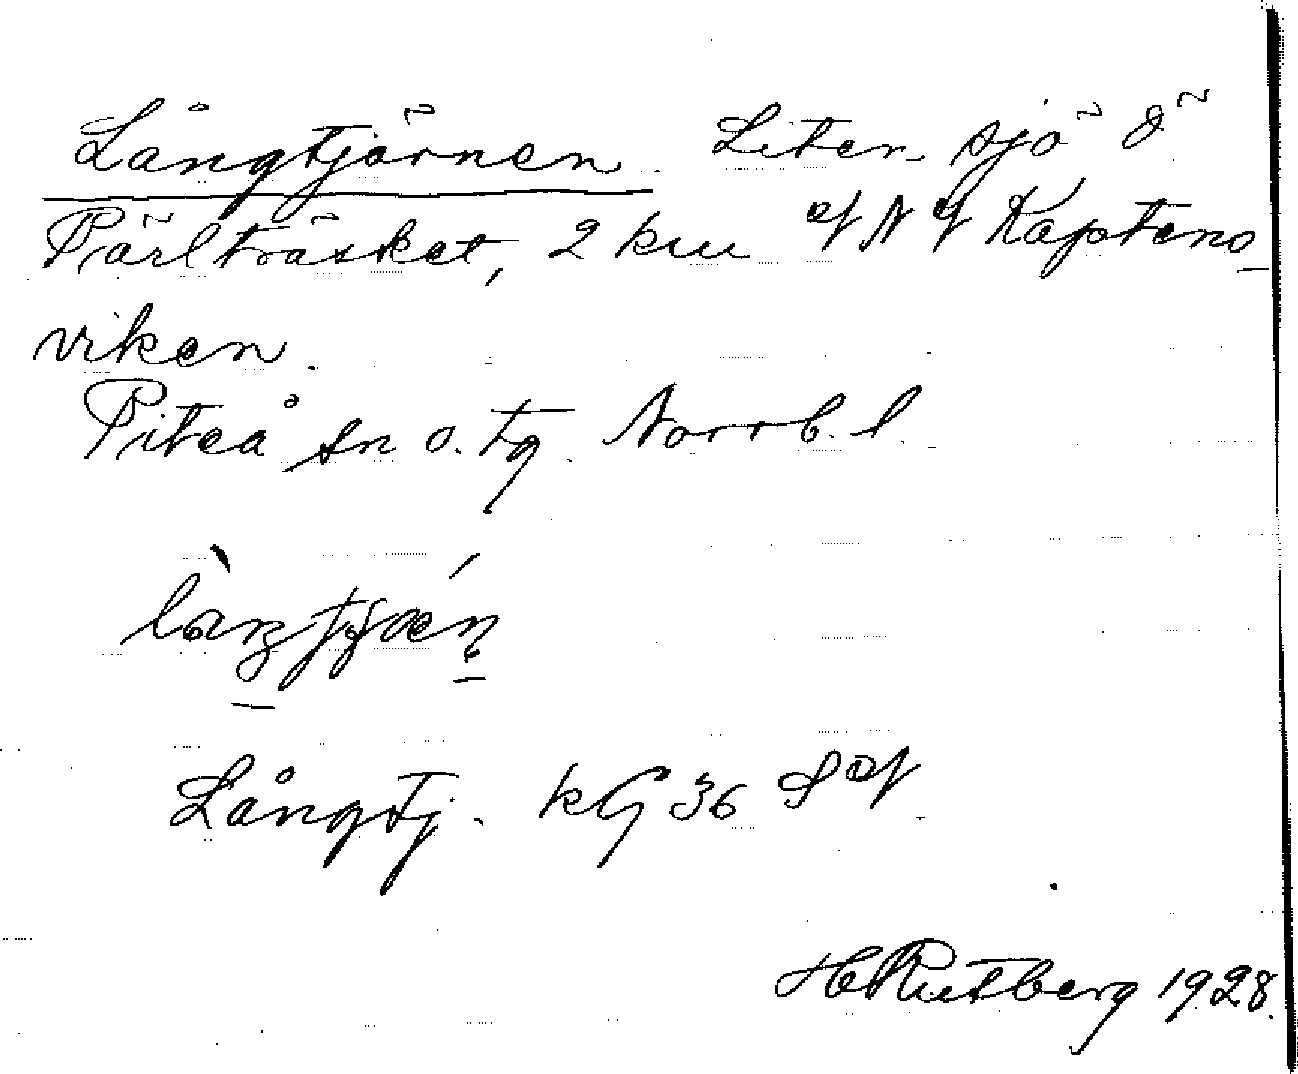 Långtjärnen. Liten sjö Ö
Pärlträsket, 2 km af N af Kaptens-
viken.
Piteå sn o. tg. Norrb. l.
Långtj. KG 36 S af
H Rutberg 1928.